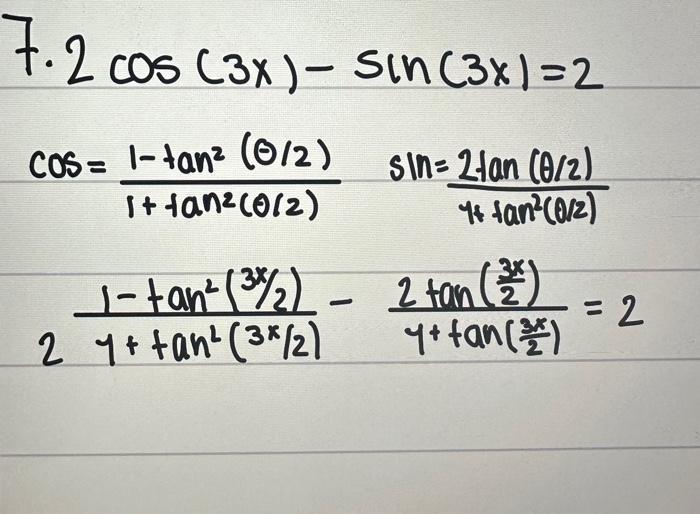 7. 2 cos (3x) - sin(3x) = 2
cos = \frac{1 - tan² (θ/2)}{1 + tan²(θ/2)} sin = \frac{2tan (θ/2)}{1 + tan²(θ/2)}
2 \frac{1 - tan² (3x/2)}{1 + tan² (3x/2)} - \frac{2 tan (\frac{3x}{2})}{1 + tan(\frac{3x}{2})} = 2